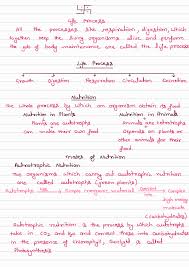 Life Process
All the processes like respiration, digestion, which
together keep the living organisms alive and perform
the job of body maintenance are called the life process
Life Process
Growth Digestion Respiration Circulation Excretion
Nutrition
The whole process by which an organism obtain its food
Nutrition in Plants Nutrition in Animals
Plants are autotrophs Animals are heterotrophs
can make their own food Depends on plants or
other animals for their
food
Modes of Nutrition
Autotrophic Nutrition
The organisms which carry out autotrophic nutrition
are called autotrophs (green plants)
Autotrophs Simple inorganic material Convert into Complex
high energy
molecule
(Carbohydrates)
Autotrophic nutrition is the process by which autotrophs
take in CO2 and H2O and convert these into carbohydrates
in the presence of chlorophyll, sunlight is called
Photosynthesis